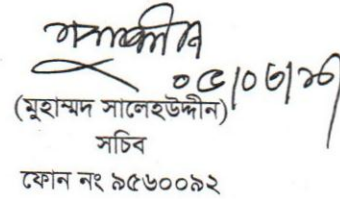 ০৫/০৬/১৬
(মুহাম্মদ সালেহউদ্দীন)
সচিব
ফোন নং ৯৫৬০০৯২